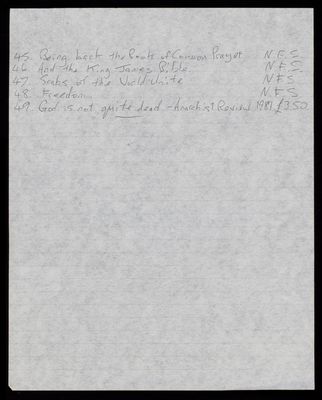 45. Bring back the Book of Common Prayer N.F.S
46. And the King James Bible. N.F.S.
47. of the World Unite N.F.S
48. Freedom N.F.S
49. God is not quite dead - Anarchist Review 1981 £3.50